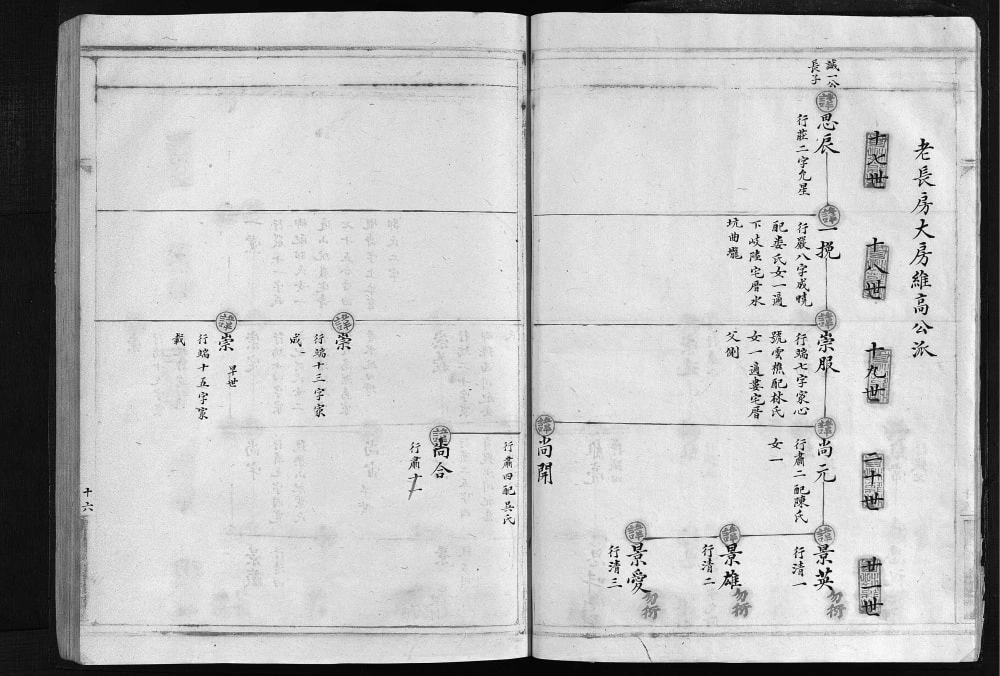 老長房大房維高公派
十七世
十八世
十九世
二十世
廿一世
誠一公
長子
諱
思辰
行莊二字九星
諱
一挽
行嚴八字成曉
配婁氏女一適
下岐陸宅厝水
坑曲壠
諱
崇服
行端七字家心
號雲樵配林氏
女一適婁宅厝
父側
諱
尚元
行肅二配陳氏
女一
諱
景英
行清一
勿衍
諱
景雄
行清二
勿衍
諱
景愛
行清三
勿衍
諱
尚開
行肅四配吳氏
諱
尚合
行肅十一
諱
崇
行端十三字家
成
諱
崇
早世
行端十五字家
載
十六